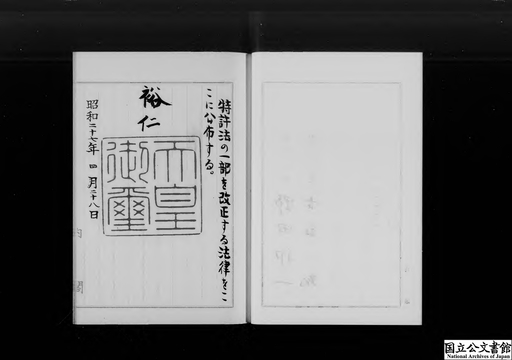 特許法の一部を改正する法律をこ
こに公布する。
裕仁
天皇
御璽
昭和二十七年四月二十八日
内閣
国立公文書館
National Archives of Japan